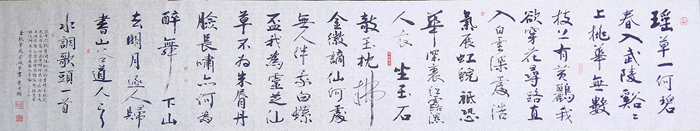 瑤草一何碧
春入武陵谿谿
上桃華無數
枝上有黃鸝我
欲穿花尋路直
入白雲深處浩
氣展虹霓祇恐
華深裏紅露濕
人衣 坐玉石
敧玉枕拂
金徽謫仙何處
無人伴我白螺
盃我為靈芝仙
草不為朱脣丹
臉長嘯亦何為
醉舞下山
去明月逐人歸
書山谷道人之
水調歌頭一首